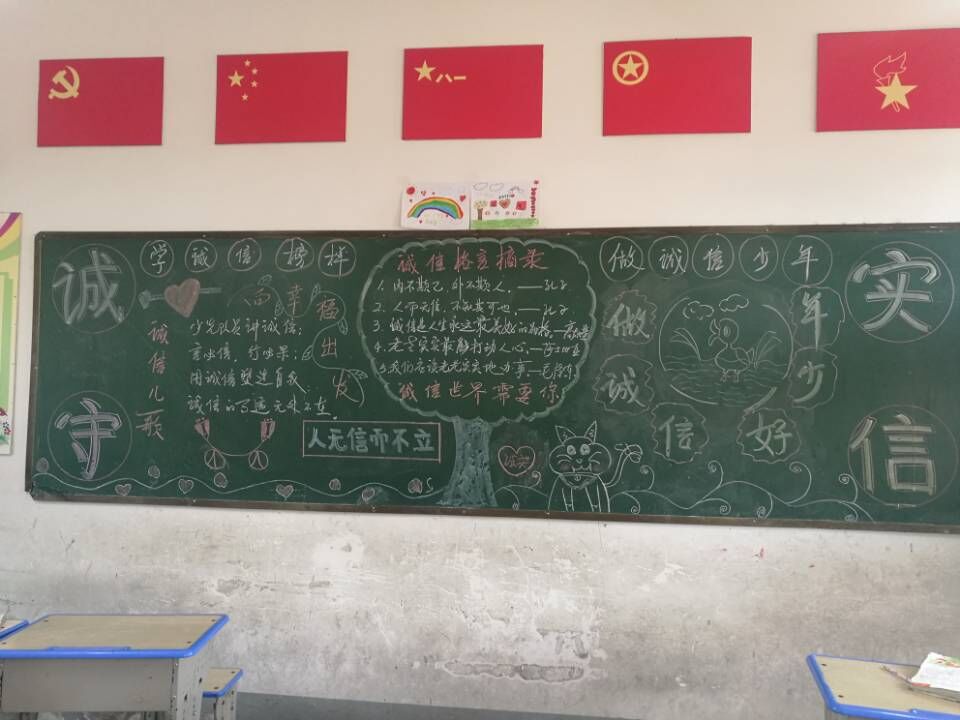 八一
诚实
守信
学诚信榜样
向幸福出发
诚信儿歌
少先队员讲诚信：
言必信，行必果；
用诚信塑造自我，
诚信的写遍无处不在。
人无信而不立
诚信格言摘录
1、内不欺己，外不欺人，——孔子
2、人而无信，不知其可也，——孔子
3、诚信是人生永远最美好的
4、老老实实最能打动人心，——莎士比亚
诚信世界需要你
诚实
做诚信少年
做诚信好
年少